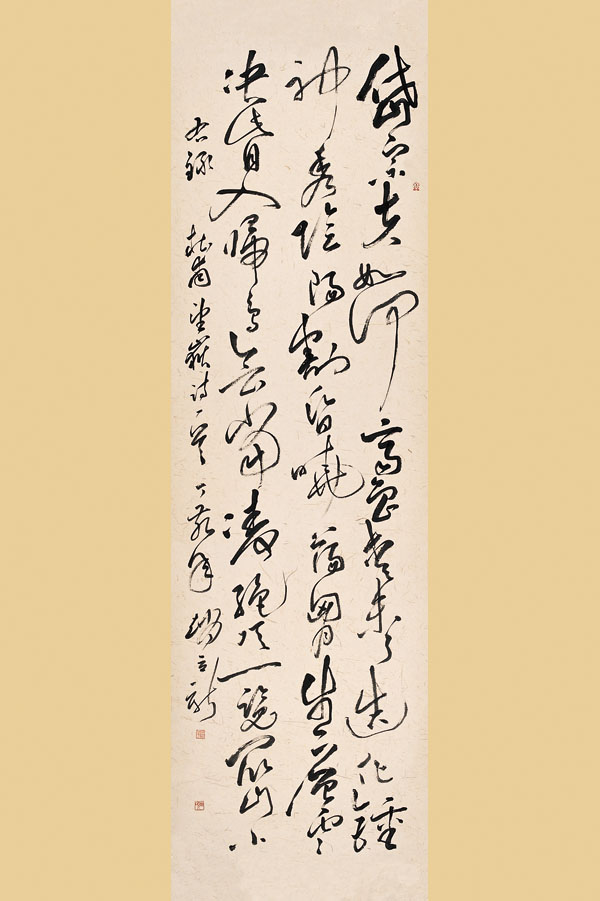 岱宗夫如何齊魯青未了造化鍾
神秀陰陽割昏曉蕩胸生層雲
決眥入歸鳥會當凌絕頂一覽眾山小
右錄杜甫望嶽詩一首丁亥年